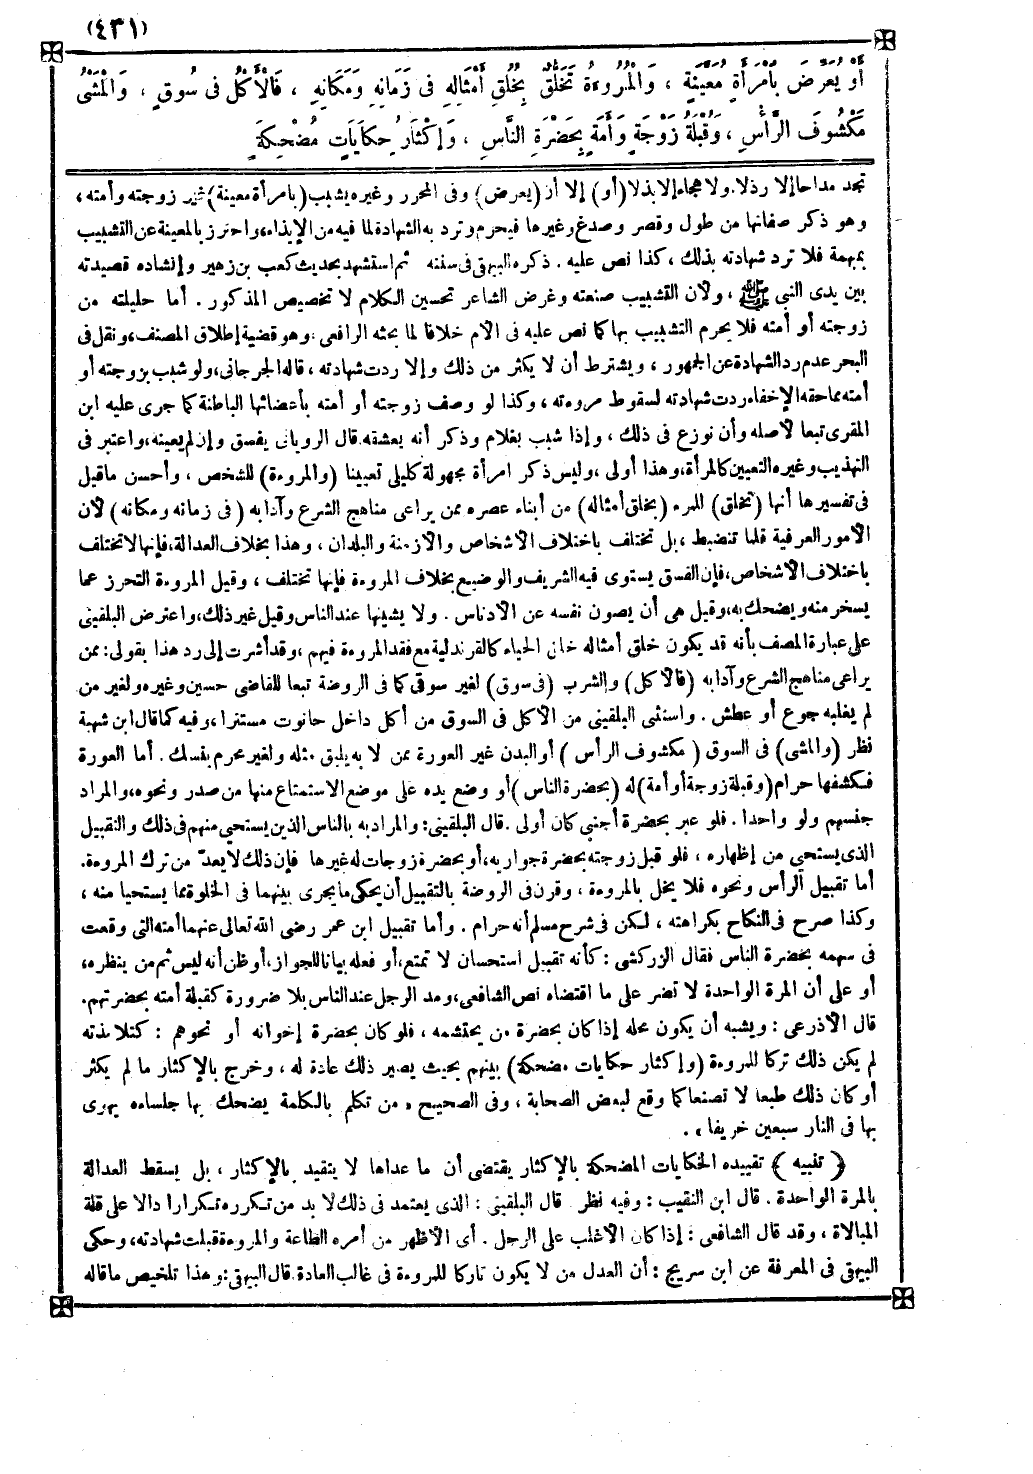 (٤٣١)
أَوْ يُعَرِّضَ بِامْرَأَةٍ مُعَيَّنَةٍ ، وَالْمُرُوءَةُ تَخَلُّقٌ بِخُلُقِ أَمْثَالِهِ فِى زَمَانِهِ وَمَكَانِهِ ، فَالْأَكْلُ فِى سُوقٍ ، وَالْمَشْىُ
مَكْشُوفَ الرَّأْسِ ، وَقُبْلَةُ زَوْجَةٍ وَأَمَةٍ بِحَضْرَةِ النَّاسِ ، وَإِكْثَارُ حِكَايَاتٍ مُضْحِكَةٍ
تجد مداحا إلا رذلا. ولا هجاء إلا بذلا (أو) إلا أن (يعرض) وفى المحرر وغيره يشبب (بامرأة معينة) غير زوجته وأمته ،
وهو ذكر صفاتها من طول وقصر وصدغ وغيرها فيحرم وترد به الشهادة لما فيه من الإيذاء، واحترز بالمعينة عن التشبيب
بمبهمة فلا ترد شهادته بذلك ، كذا نص عليه . ذكره البيهقى فى سننه ثم استشهد بحديث كعب بن زهير وإنشاده قصيدته
بين يدى النبى ﷺ ، ولأن التشبيب صنعته وغرض الشاعر تحسين الكلام لا تخصيص المذكور . أما حليلته من
زوجته أو أمته فلا يحرم التشبيب بها كما نص عليه فى الأم خلافا لما بحثه الرافعى . وهو قضية إطلاق المصنف، ونقل فى
البحر عدم رد الشهادة عن الجمهور ، ويشترط أن لا يكثر من ذلك وإلا ردت شهادته ، قاله الجرجانى، ولو شبب بزوجته أو
أمته مما حقه الإخفاء ردت شهادته لسقوط مروءته ، وكذا لو وصف زوجته أو أمته بأعضائها الباطنة كما جرى عليه ابن
المقرى تبعا لأصله وأن نوزع فى ذلك ، وإذا شبب بغلام وذكر أنه يعشقه. قال الرويانى يفسق وإن لم يعينه، واعتبر فى
التهذيب وغيره التعيين كالمرأة، وهذا أولى ، وليس ذكر امرأة مجهولة كليلى تعيينا (والمروءة) للشخص ، وأحسن ما قيل
فى تفسيرها أنها (تخلق) للمرء (بخلق أمثاله) من أبناء عصره ممن يراعى مناهج الشرع وآدابه (فى زمانه ومكانه) لأن
الأمور العرفية قلما تنضبط ، بل تختلف باختلاف الأشخاص والأزمنة والبلدان ، وهذا بخلاف العدالة، فإنها لا تختلف
باختلاف الأشخاص، فإن الفسق يستوى فيه الشريف والوضيع بخلاف المروءة فإنها تختلف ، وقيل المروءة التحرز عما
يسخر منه ويضحك به، وقيل هى أن يصون نفسه عن الأدناس . ولا يشينها عند الناس وقيل غير ذلك، واعترض البلقينى
على عبارة المصنف بأنه قد يكون خلق أمثاله خلق الحياء كالقرندلية مع فقد المروءة فيهم ، وقد أشرت إلى رد هذا بقولى: ممن
يراعى مناهج الشرع وآدابه (فالأكل) والشرب (فى سوق) لغير سوقى كما فى الروضة تبعا للقاضى حسين وغيره ولغير من
لم يغلبه جوع أو عطش . واستثنى البلقينى من الأكل فى السوق من أكل داخل حانوت مستترا، وفيه كما قال ابن شهبة
نظر (والمشى) فى السوق (مكشوف الرأس) أو البدن غير العورة ممن لا يليق به مثله ولغير محرم بنسك . أما العورة
فكشفها حرام (وقبلة زوجة أو أمة) له (بحضرة الناس) أو وضع يده على موضع الاستمتاع منها من صدر ونحوه، والمراد
جنسهم ولو واحدا . فلو عبر بحضرة أجنبى كان أولى . قال البلقينى: والمراد به بالناس الذين يستحي منهم فى ذلك والتقبيل
الذى يستحي من إظهاره ، فلو قبل زوجته بحضرة جواريه، أو بحضرة زوجات له غيرها فإن ذلك لا يعدّ من ترك المروءة.
أما تقبيل الرأس ونحوه فلا يخل بالمروءة ، وقرن فى الروضة بالتقبيل أن يحكى ما يجرى بينهما فى الخلوة مما يستحيا منه ،
وكذا صرح فى النكاح بكراهته ، لكن فى شرح مسلم أنه حرام . وأما تقبيل ابن عمر رضى الله تعالى عنهما أمته التى وقعت
فى سهمه بحضرة الناس فقال الزركشى : كأنه تقبيل استحسان لا تمتع، أو فعله بيانا للجواز، أو ظن أنه ليس ثم من ينظره،
أو على أن المرة الواحدة لا تضر على ما اقتضاه نص الشافعى، ومد الرجل عند الناس بلا ضرورة كقبلة أمته بحضرتهم.
قال الأذرعى : ويشبه أن يكون محله إذا كان بحضرة من يحتشمه ، فلو كان بحضرة إخوانه أو نحوهم : كتلامذته
لم يكن ذلك تركا للمروءة (وإكثار حكايات مضحكة) بينهم بحيث يصير ذلك عادة له ، وخرج بالإكثار ما لم يكثر
أو كان ذلك طبعا لا تصنعا كما وقع لبعض الصحابة ، وفى الصحيح « من تكلم بالكلمة يضحك بها جلساءه يهوى
بها فى النار سبعين خريفا » .
( تنبيه ) تقييده الحكايات المضحكة بالإكثار يقتضى أن ما عداها لا يتقيد بالإكثار ، بل يسقط العدالة
بالمرة الواحدة . قال ابن النقيب : وفيه نظر قال البلقينى : الذى يعتمد فى ذلك لا بد من تكرره تكرارا دالا على قلة
المبالاة ، وقد قال الشافعى : إذا كان الأغلب على الرجل . أى الأظهر من أمره الطاعة والمروءة قبلت شهادته، وحكى
البيهقى فى المعرفة عن ابن سريج : أن العدل من لا يكون تاركا للمروءة فى غالب العادة. قال البيهقى: وهذا تلخيص ما قاله